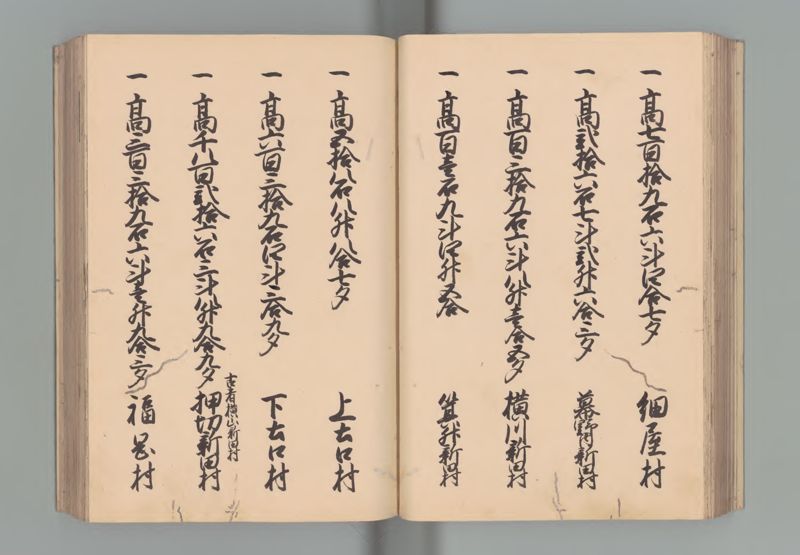 一 高七百拾九石六斗四合七夕 細屋村
一 高弐拾六石七斗弐升六合三夕 幕野新田村
一 高百三拾九石六斗八升壱合五夕 横川新田村
一 高百壱石九斗四升五合 算升新田村
一 高五拾八石八升八合七夕 上古口村
一 高六百三拾九石四斗三合九夕 下古口村
古者横山新田村
一 高千八百弐拾六石三斗八升九合九夕 押切新田村
一 高三百三拾九石六斗壱升九合三夕 福岡村